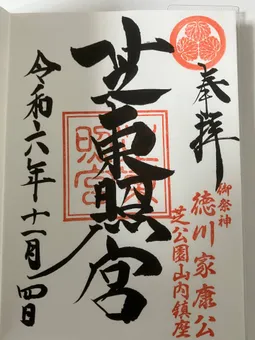 奉拝
御祭神
徳川家康公
芝公園山内鎮座
芝東照宮
令和六年十一月四日